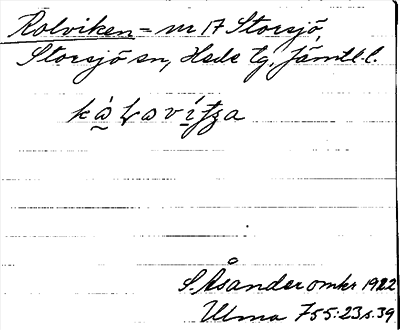 Rolviken = nr 17 Storsjö,
Storsjö sn, Hede tg, Jämtl. l.
S. Åsander omkr 1922
Ulma 755:23 s. 39